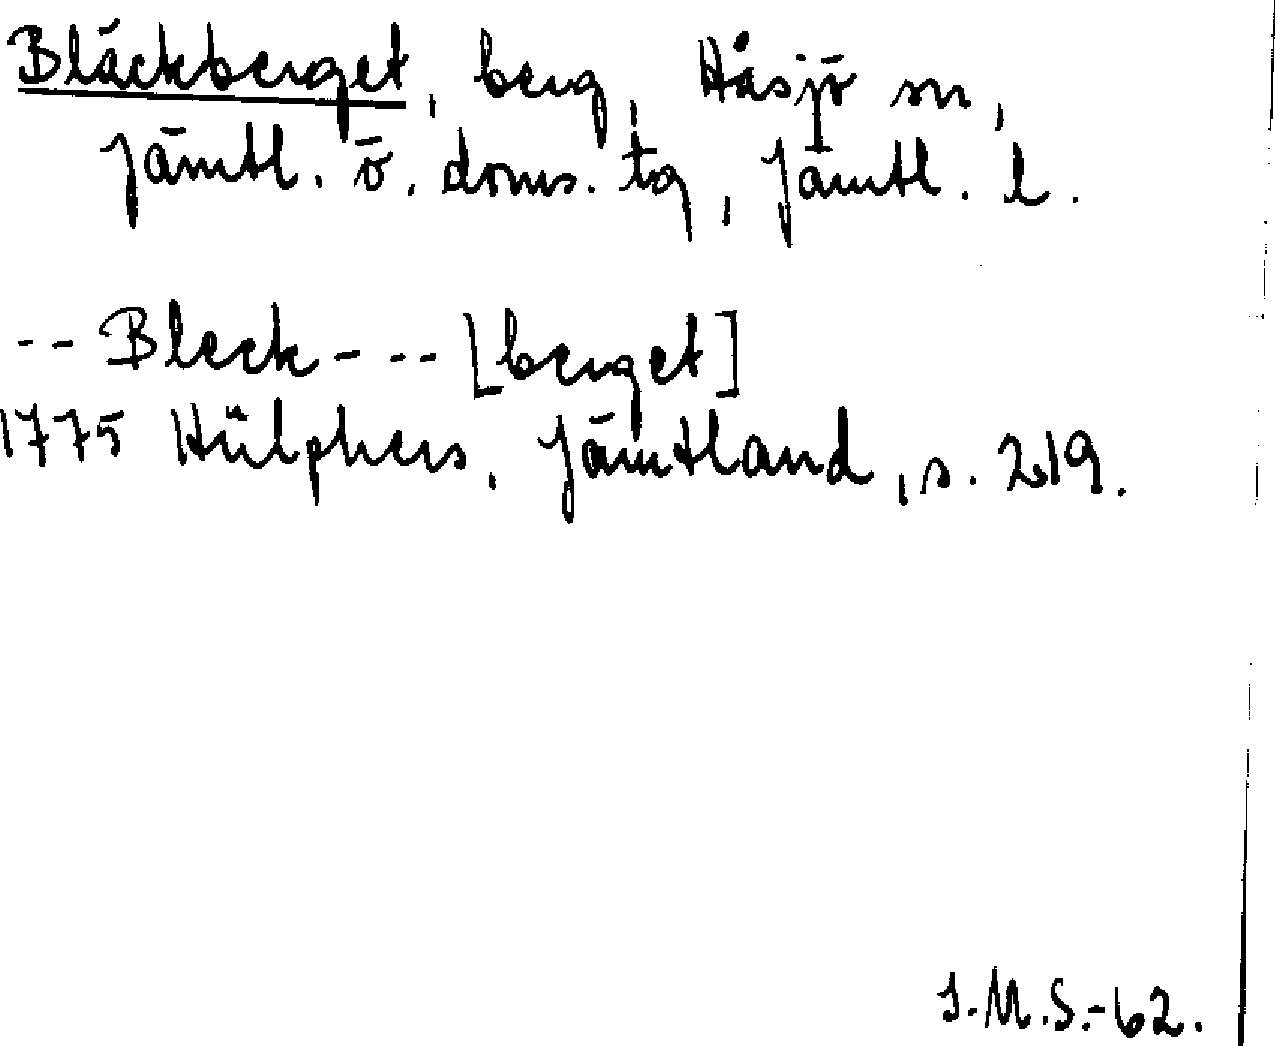 Bläckberget, berg, Håsjö sn,
Jämtl. ö. doms. tg, Jämtl. l.
-- Bleck- -- [berget]
1775 Hülphers, Jämtland, s. 219.
I.M.S.-62.